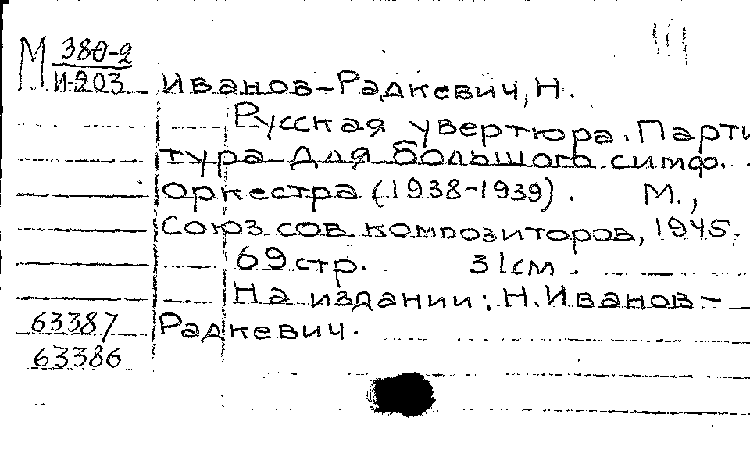 М 380-2
И-203
Иванов-Радкевич, Н.
Русская увертюра. Парти
тура для большого симф.
оркестра (1938-1939). М.,
Союз сов. композиторов, 1945.
69 стр. 31 см.
На издании: Н. Иванов-
Радкевич.
63387
63386